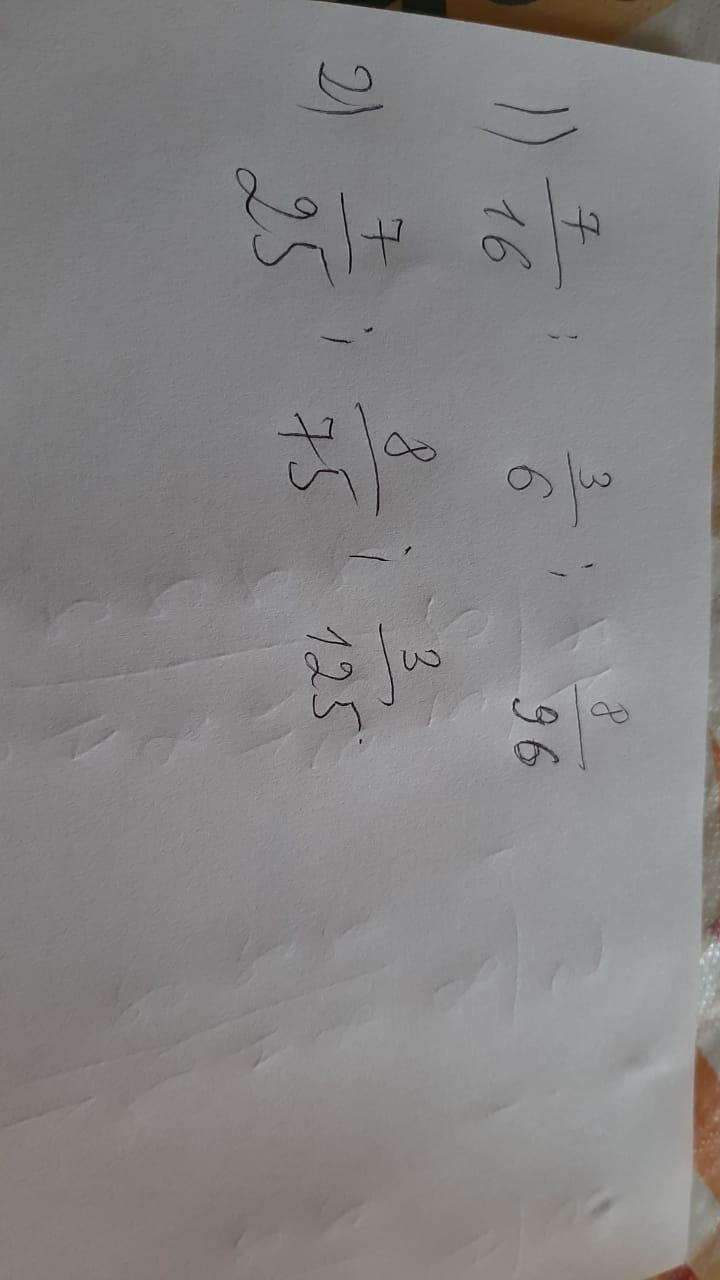 1) 7/16 ; 3/6 ; 8/96
2) 7/25 ; 8/75 ; 3/125.